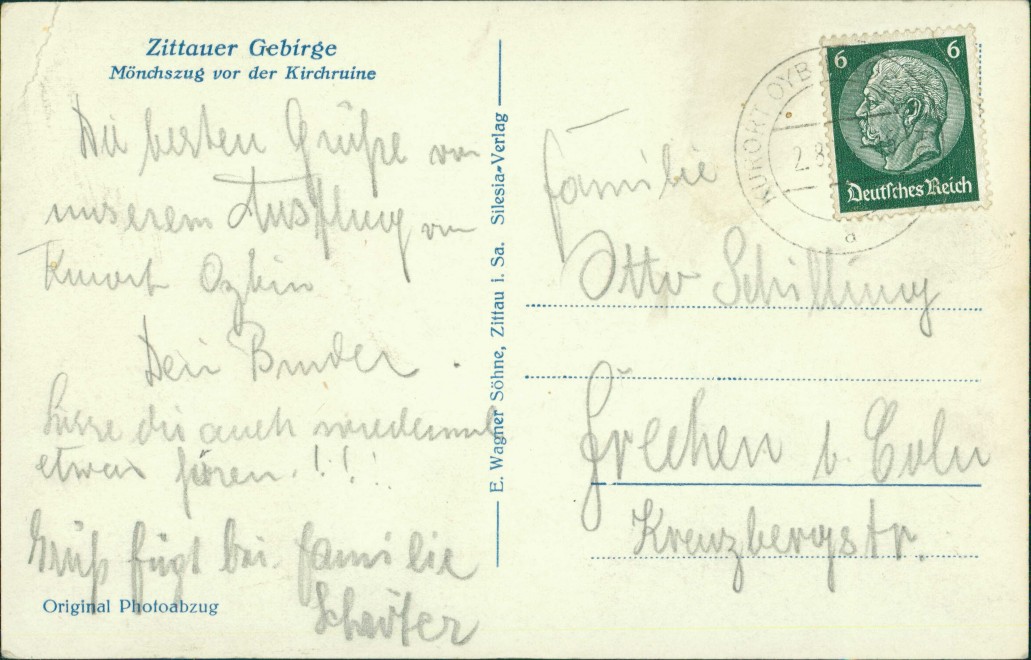 Zittauer Gebirge
Mönchszug vor der Kirchruine
Die besten Grüße von
unserem Ausflug von
Kurort Oybin
Dein Bruder.
Lasse du auch wiedermal
etwas hören!!!
Gruß fügt bei Familie
Schäfer
Original Photoabzug
E. Wagner Söhne, Zittau i. Sa. Silesia-Verlag
KURORT OYB
2.8
a
6 6
Deutsches Reich
Familie
Otto Schilling
Frechen b. Coln
Kreuzbergstr.